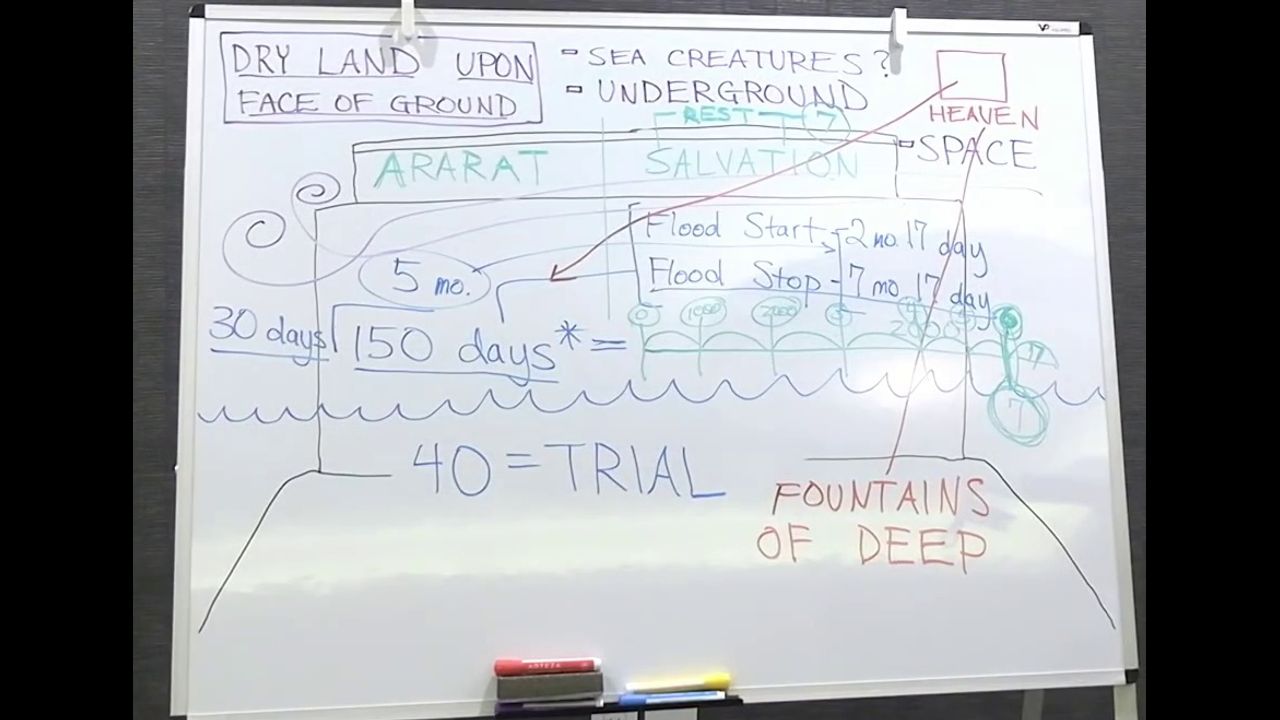 DRY LAND UPON
FACE OF GROUND
- SEA CREATURES?
- UNDERGROUND
HEAVEN
- SPACE
REST 7
ARARAT SALVATION
Flood Start - 2 mo. 17 day
Flood Stop - 7 mo 17 day
5 mo.
30 days 150 days* =
0 1000 2000
7
40 = TRIAL
FOUNTAINS
OF DEEP